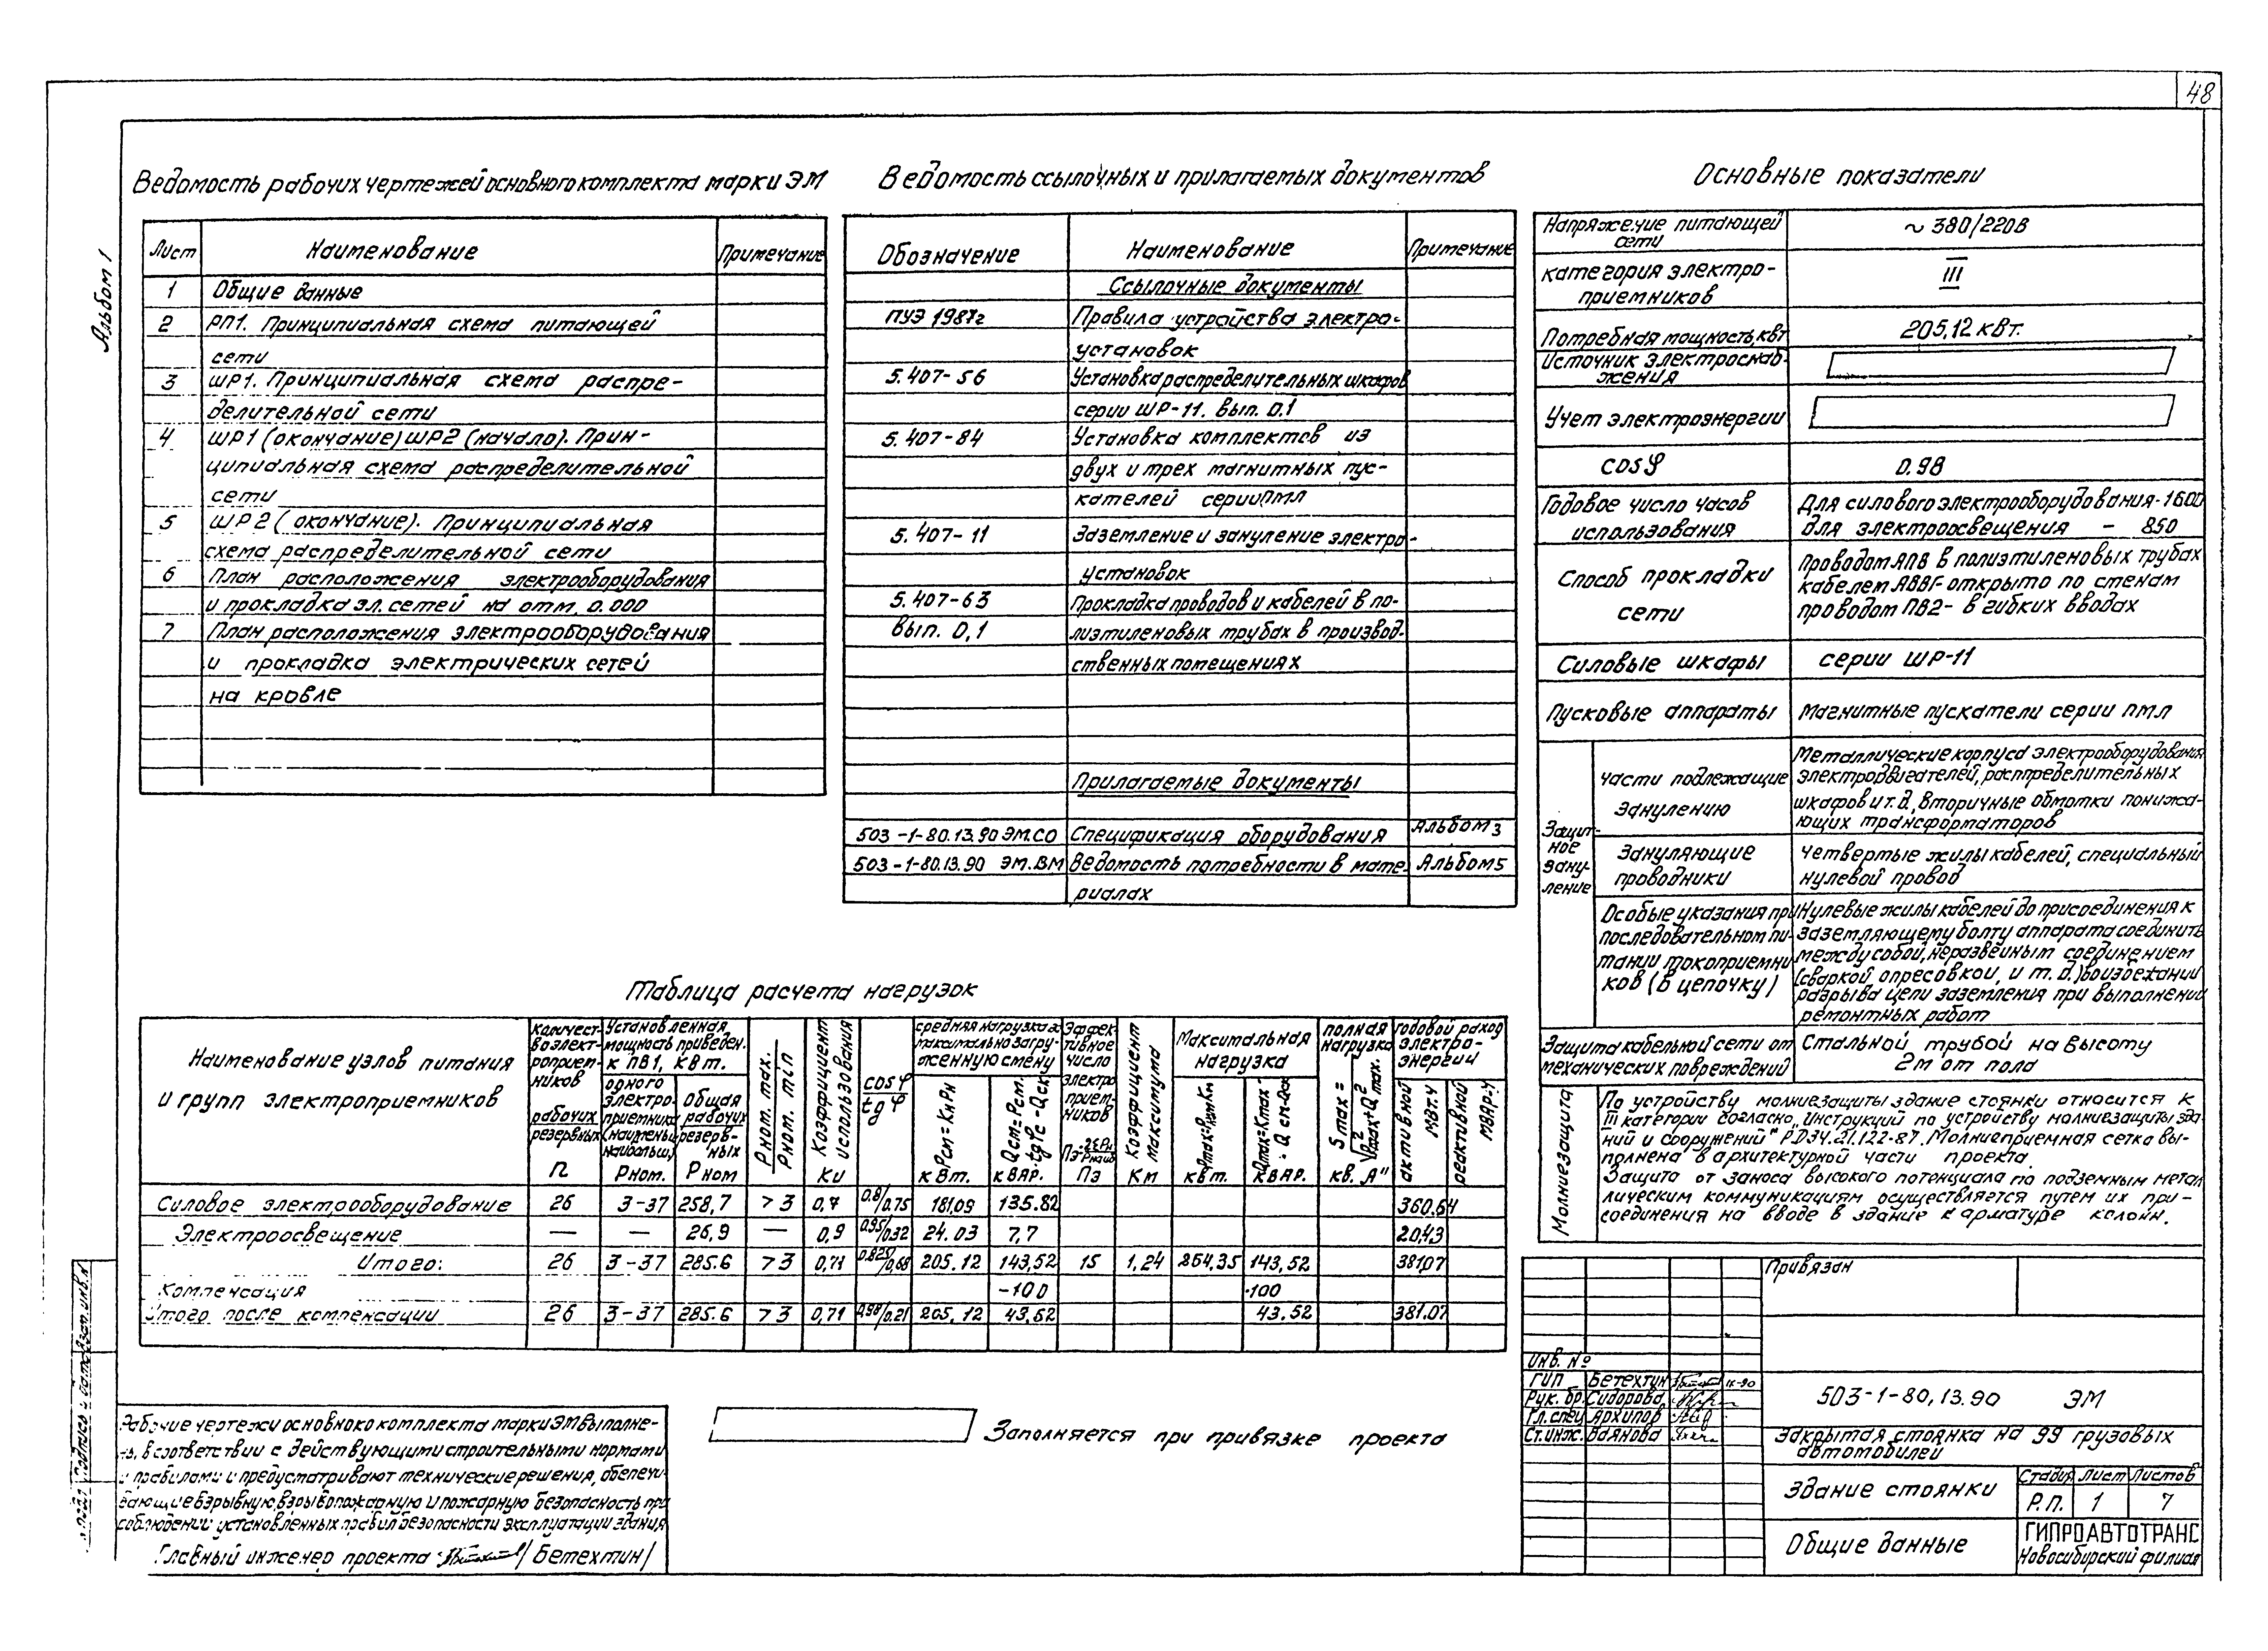 48
Альбом 1
Ведомость рабочих чертежей основного комплекта марки ЭМ
Лист Наименование Примечание
1 Общие данные
2 РП1. Принципиальная схема питающей
сети
3 ШР1. Принципиальная схема распре-
делительной сети
4 ШР1 (окончание) ШР2 (начало). Прин-
ципиальная схема распределительной
сети
5 ШР2 (окончание). Принципиальная
схема распределительной сети
6 План расположения электрооборудования
и прокладка эл. сетей на отм. 0.000
7 План расположения электрооборудования
и прокладка электрических сетей
на кровле
Ведомость ссылочных и прилагаемых документов
Обозначение Наименование Примечание
Ссылочные документы
ПУЭ 1987г Правила устройства электро-
установок
5.407-56 Установка распределительных шкафов
серии ШР-11. вып. 0,1
5.407-84 Установка комплектов из
двух и трех магнитных пус-
кателей серии ПМЛ
5.407-11 Заземление и зануление электро-
установок
5.407-63 Прокладка проводов и кабелей в по-
вып. 0,1 лиэтиленовых трубах в производ-
ственных помещениях
Прилагаемые документы
503-1-80.13.90 ЭМ.СО Спецификация оборудования Альбом 3
503-1-80.13.90 ЭМ.ВМ Ведомость потребности в мате- Альбом 5
риалах
Основные показатели
Напряжение питающей сети ~380/220В
категория электро-
приемников III
Потребная мощность, квт 205,12 кВт.
Источник электроснаб-
жения
Учет электроэнергии
cosφ 0.98
Годовое число часов Для силового электрооборудования-1600
использования для электроосвещения - 850
Способ прокладки
сети
Проводом АПВ в полиэтиленовых трубах
кабелем АВВГ-открыто по стенам
проводом ПВ2- в гибких вводах
Силовые шкафы серии ШР-11
Пусковые аппараты Магнитные пускатели серии ПМЛ
Защит-
ное
зану-
ление
части подлежащие
занулению
Металлические корпуса электрооборудования
электродвигателей, распределительных
шкафов и т.д., вторичные обмотки понижа-
ющих трансформаторов
Зануляющие
проводники
Четвертые жилы кабелей, специальный
нулевой провод
Особые указания при
последовательном пи-
тании токоприемни-
ков (в цепочку)
Нулевые жилы кабелей до присоединения к
заземляющему болту аппарата соединить
между собой, неразъемным соединением
(сваркой опрессовкой, и т.д.) во избежании
разрыва цепи заземления при выполнении
ремонтных работ
Защита кабельной сети от
механических повреждений
Стальной трубой на высоту
2м от пола
Молниезащита
По устройству молниезащиты здание стоянки относится к
III категории согласно „Инструкций по устройству молниезащиты зда-
ний и сооружений" РД34.21.122-87. Молниеприемная сетка вы-
полнена в архитектурной части проекта.
Защита от заноса высокого потенциала по подземным метал
лическим коммуникациям осуществляется путем их при-
соединения на вводе в здание к арматуре колонн.
Таблица расчета нагрузок
Наименование узлов питания
и групп электроприемников
Количест-
во элект-
роприем-
ников
рабочих
резервных
n
Установленная
мощность приведен.
к ПВ1, кВт.
одного
электро-
приемника
(наименьш
наибольш.)
Рном.
Общая
рабочих
резерв-
ных
Рном
Рном. max.
Рном. min
Коэффициент
использования
Ки
cosφ
tgφ
средняя нагрузка за
максимально загру-
женную смену
Рсм=КиРн
кВт.
Qсм=Рсм.
tgφс-Qск
кВАР.
Эффек-
тивное
число
электро
прием-
ников
Пэ
Коэффициент
максимума
Км
Максимальная
нагрузка
квт.
кВАР.
полная
нагрузка
Smax=
кв. А"
годовой расход
электро-
энергии
активной
МВт.ч
реактивной
МВАР.ч
Силовое электрооборудование 26 3-37 258,7 >3 0,7 0.8/0.75 181,09 135.82 360.64
Электроосвещение — — 26,9 — 0,9 0.95/0.32 24.03 7,7 20,43
Итого: 26 3-37 285.6 >3 0,71 0.825/0,68 205.12 143,52 15 1,24 254,35 143,52 381,07
Компенсация -100 -100
Итого после компенсации 26 3-37 285.6 >3 0,71 0,98/0.21 205,12 43,52 43.52 381.07
Рабочие чертежи основного комплекта марки ЭМ выполне-
ны, в соответствии с действующими строительными нормами
и правилами и предусматривают технические решения, обеспечи-
вающие взрывную, взрывопожарную и пожарную безопасность при
соблюдении установленных правил безопасности эксплуатации здания
Главный инженер проекта /Бетехтин/
Заполняется при привязке проекта
Привязан
Инв. №
ГИП Бетехтин IX-90
Рук. бр. Сидорова
Гл. спец Архипов
Ст.инж. Ваянова
503-1-80,13.90 ЭМ
Закрытая стоянка на 99 грузовых
автомобилей
Здание стоянки
Стадия Лист Листов
Р.П. 1 7
Общие данные
ГИПРОАВТОТРАНС
Новосибирский филиал